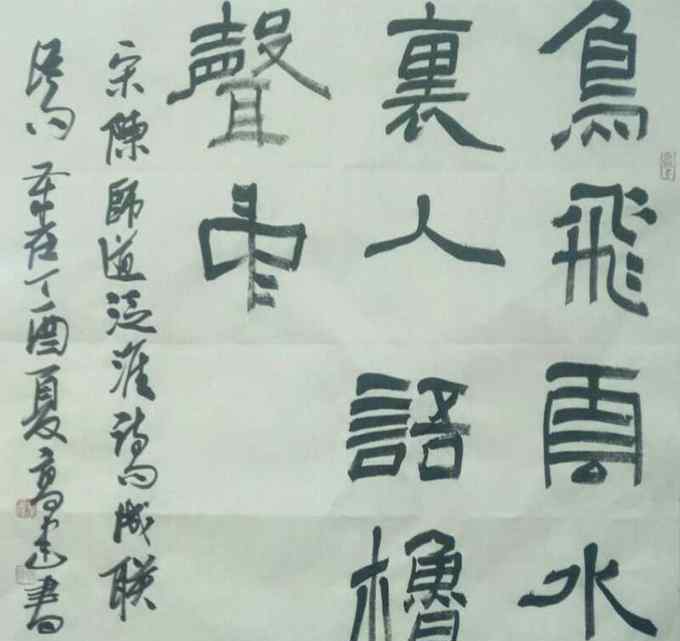 鳥飛雲水
裏人語櫓
聲中
宋陳師道泛淮詩句成联
歲在丁酉夏高書